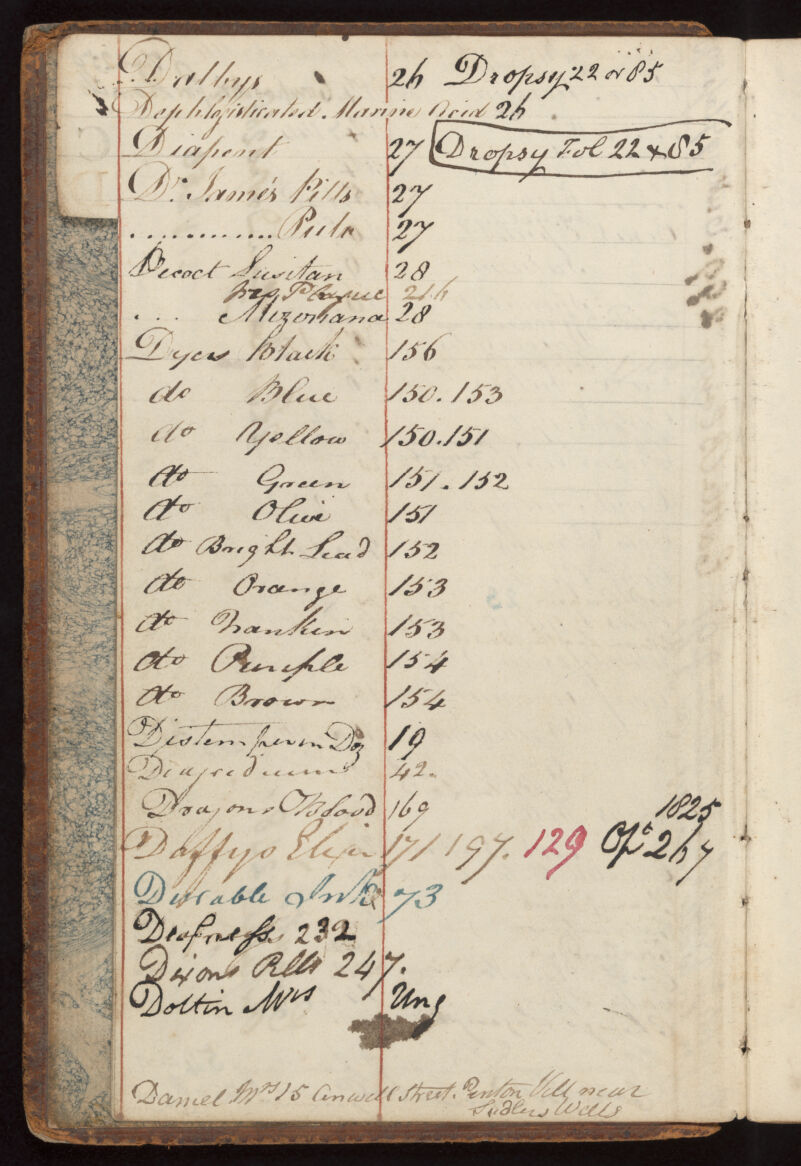 Dalbys 26 Dropsy 22 or 85
Dephlogisticated Marine Acid 26
Diapent 27 Dropsy Fol 22 & 85
Dr. James Pills 27
............ Pulv 27
Decoct Lusitan 28
216
... Mezoriana 28
Dyers Black 156
do Blue 150. 153
do Yellow 150. 151
do Green 151. 152
do Olive 151
do Bright Lead 152
do Orange 153
do Nankin 153
do Purple 154
do Brown 154
Distemper in Dog 19
Diagredium 42.
Dragons Blood 169
1825
Daffys Elixir 171 197. 129 Opt 267
Durable Ink 73
Deafness 232
Dixons Pills 247.
Doltin Mrs Ung
Daniel Mrs 15 Street. Penton Vill near
Sadlers Wells